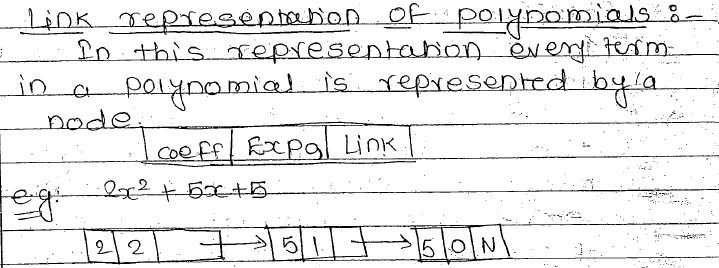 Link representation of polynomials :-
In this representation every term
in a polynomial is represented by a
node.
coeff | Expo | Link
eg: 2x² + 5x + 5
2 | 2 | → 5 | 1 | → 5 | 0 | N